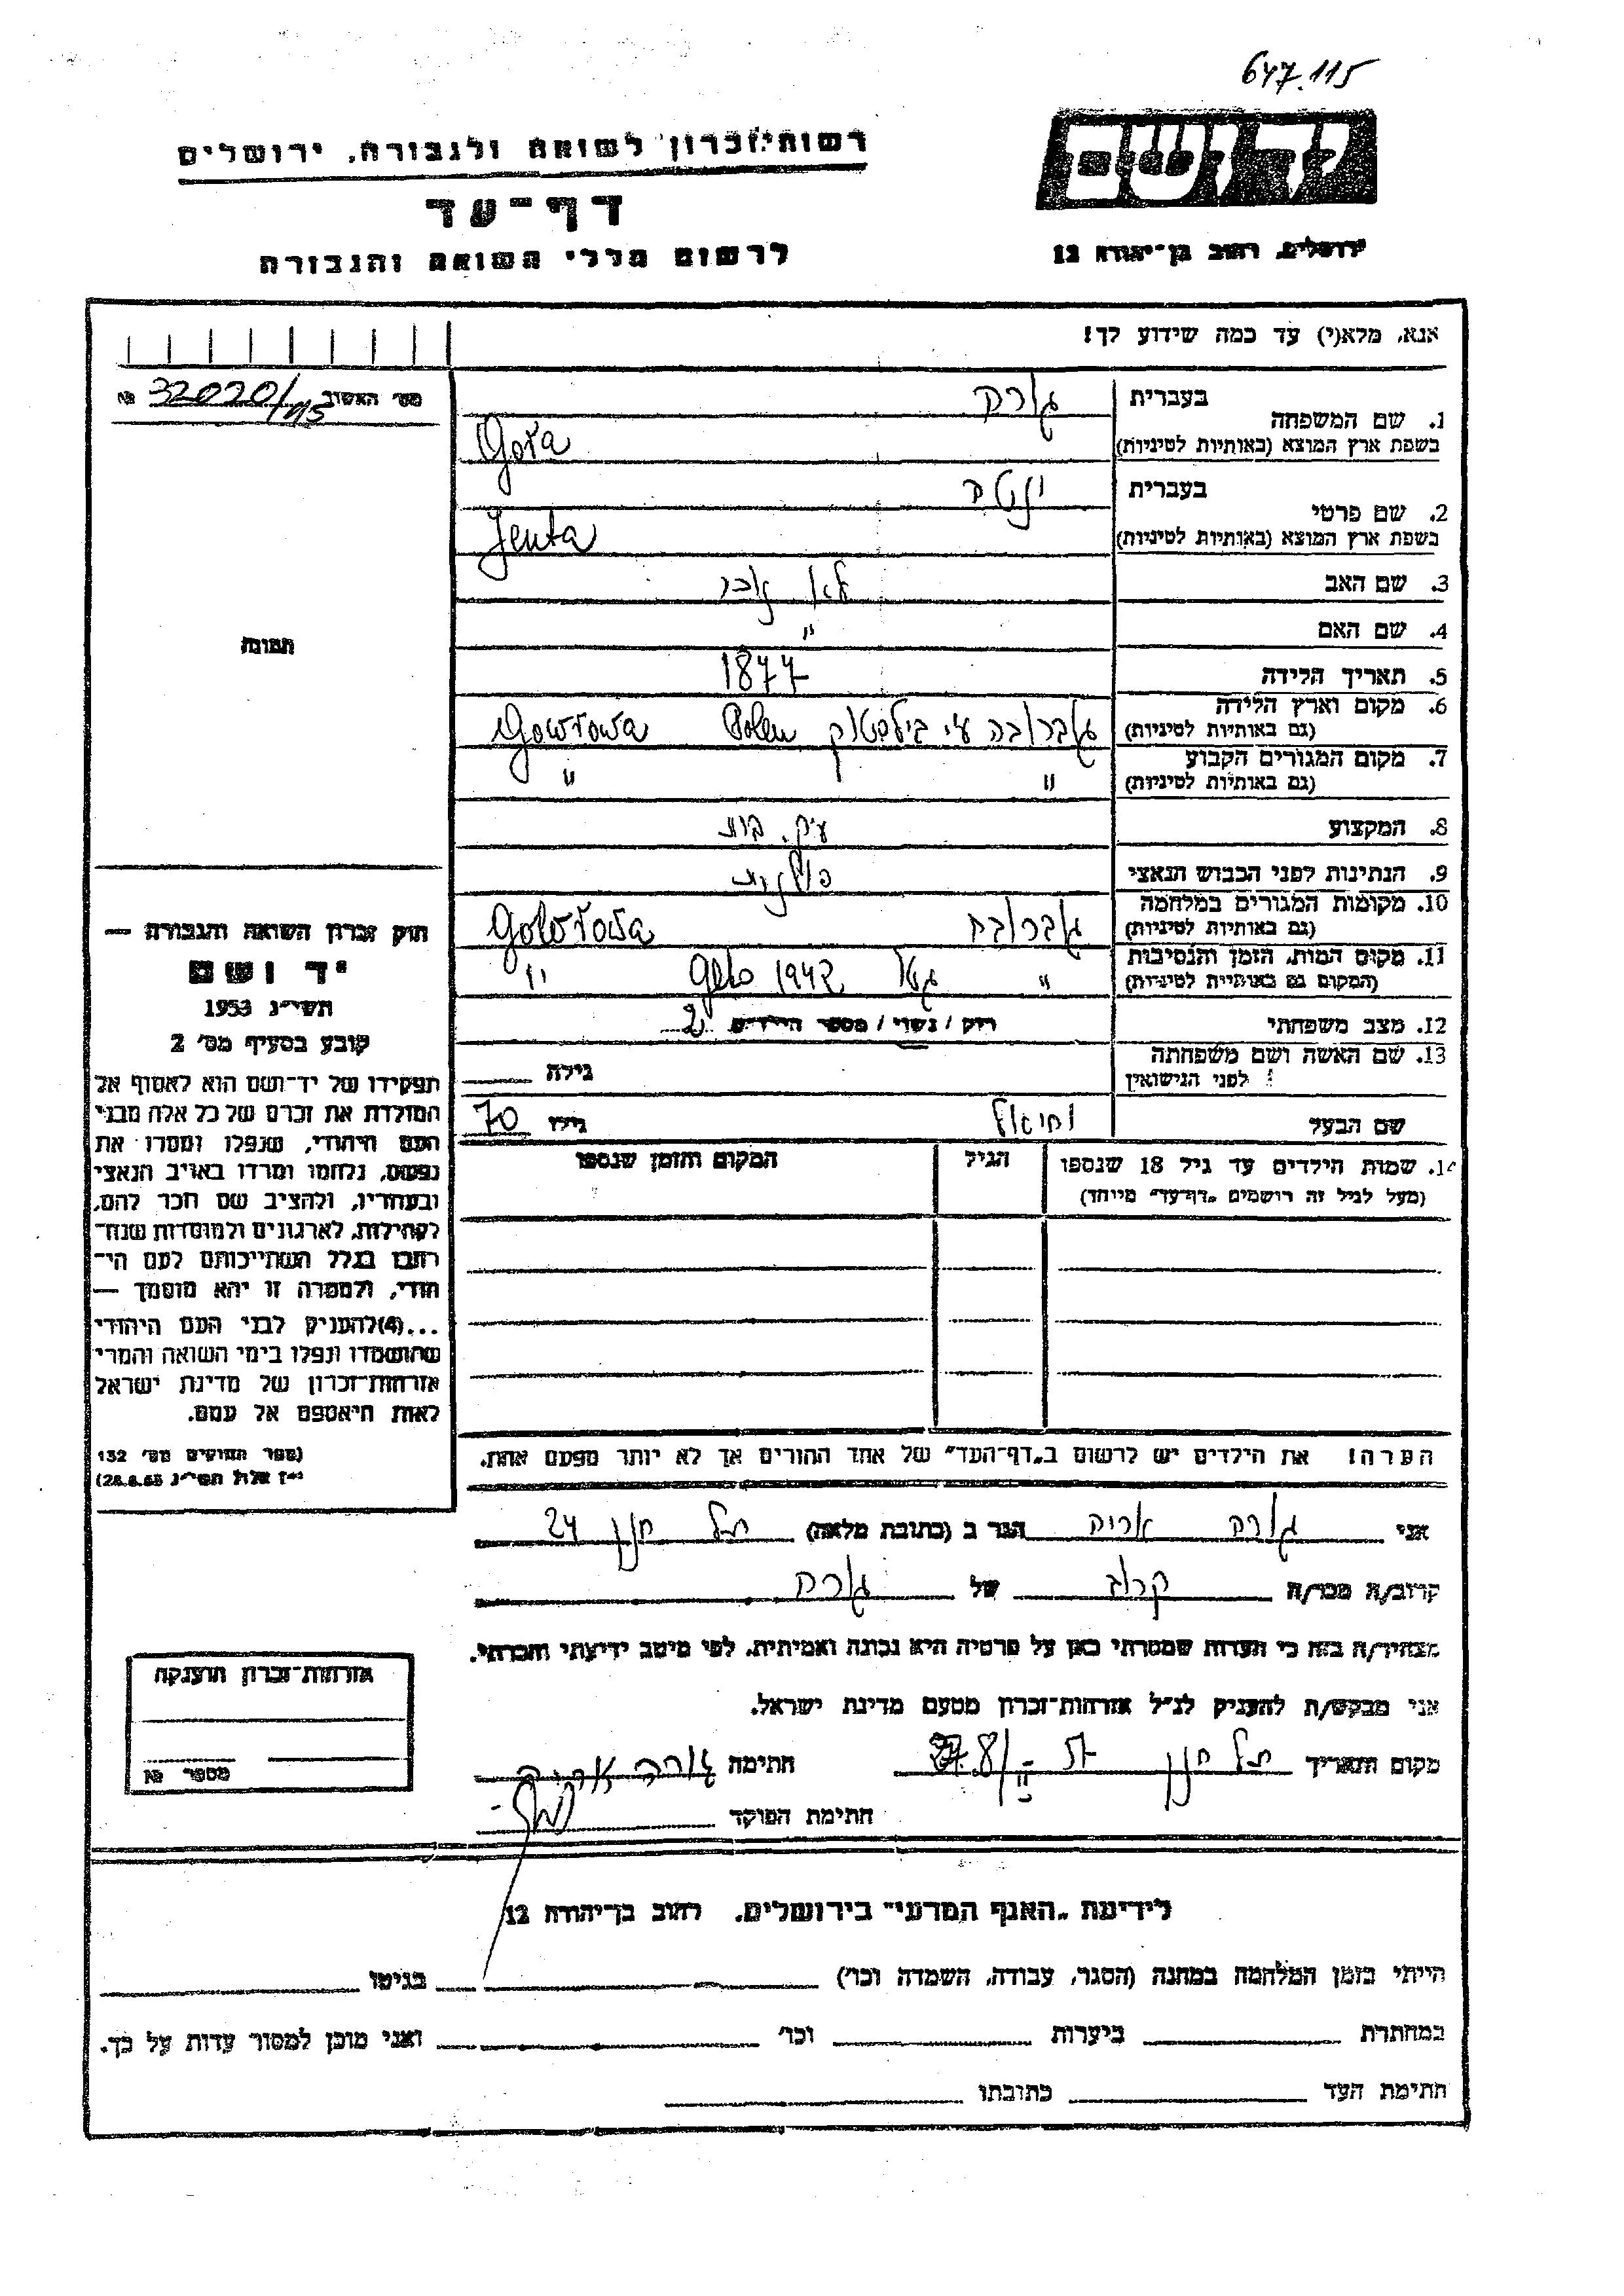 647.115
רשות־זכרון לשואה ולגבורה, ירושלים
יד ושם
דף־עד
לרשום חללי השואה והגבורה
ירושלים, רחוב בן־יהודה 12
אנא, מלא(י) עד כמה שידוע לך!
מס׳ האשוב № 32020/115
בעברית גורה
1. שם המשפחה
בשפת ארץ המוצא (באותיות לטיניות) Gora
בעברית ינטה
2. שם פרטי
בשפת ארץ המוצא (באותיות לטיניות) Jenta
3. שם האב לא זוכר
4. שם האם "
תמונה
5. תאריך הלידה 1877
6. מקום וארץ הלידה
(גם באותיות לטיניות) גוברובה ע״י Polen Goworowa
7. מקום המגורים הקבוע
(גם באותיות לטיניות) " "
8. המקצוע עק. בית
9. הנתינות לפני הכבוש הנאצי פולנית
10. מקומות המגורים במלחמה
(גם באותיות לטיניות) גוברובה Goworowa
11. מקום המות, הזמן והנסיבות
(המקום גם באותיות לטיניות) " גטו Geto 1942 "
12. מצב משפחתי רוק / נשוי / מספר הילדים 2
13. שם האשה ושם משפחתה
לפני הנישואין גילה
שם הבעל גילו 70
14. שמות הילדים עד גיל 18 שנספו הגיל המקום והזמן שנספו
(מעל לגיל זה רושמים „דף־עד״ מיוחד)
חוק זכרון השואה והגבורה —
יד ושם
תשי״ג 1953
קובע בסעיף מס׳ 2
תפקידו של יד־ושם הוא לאסוף אל
המולדת את זכרם של כל אלה מבני
העם היהודי, שנפלו ומסרו את
נפשם, נלחמו ומרדו באויב הנאצי
ובעוזריו, ולהציב שם וזכר להם,
לקהילות, לארגונים ולמוסדות שנח־
רבו בגלל השתייכותם לעם הי־
הודי, ולמטרה זו יהא מוסמך —
...(4)להעניק לבני העם היהודי
שהושמדו ונפלו בימי השואה והמרי
אזרחות־זכרון של מדינת ישראל
לאות היאספם אל עמם.
(ספר החוקים מס׳ 132
י״ז אלול תשי״ג 28.8.53)
הערה! את הילדים יש לרשום ב„דף־העד״ של אחד ההורים אך לא יותר מפעם אחת.
אני גורה אריה הגר ב (כתובת מלאה) תל חנן 24
קרוב/ה מכר/ה קרוב של גורה
מצהיר/ה בזה כי העדות שמסרתי כאן על פרטיה היא נכונה ואמיתית, לפי מיטב ידיעתי והכרתי.
אני מבקש/ת להעניק לנ״ל אזרחות־זכרון מטעם מדינת ישראל.
מקום ותאריך תל חנן חתימה גורה אריה
חתימת הפוקד
אזרחות־זכרון הוענקה
מספר №
לידיעת „האגף המדעי״ בירושלים, רחוב בן־יהודה 12
הייתי בזמן המלחמה במחנה (הסגר, עבודה, השמדה וכו׳) בגיטו
במחתרת ביערות וכו׳ ואני מוכן למסור עדות על כך.
חתימת העד כתובתו